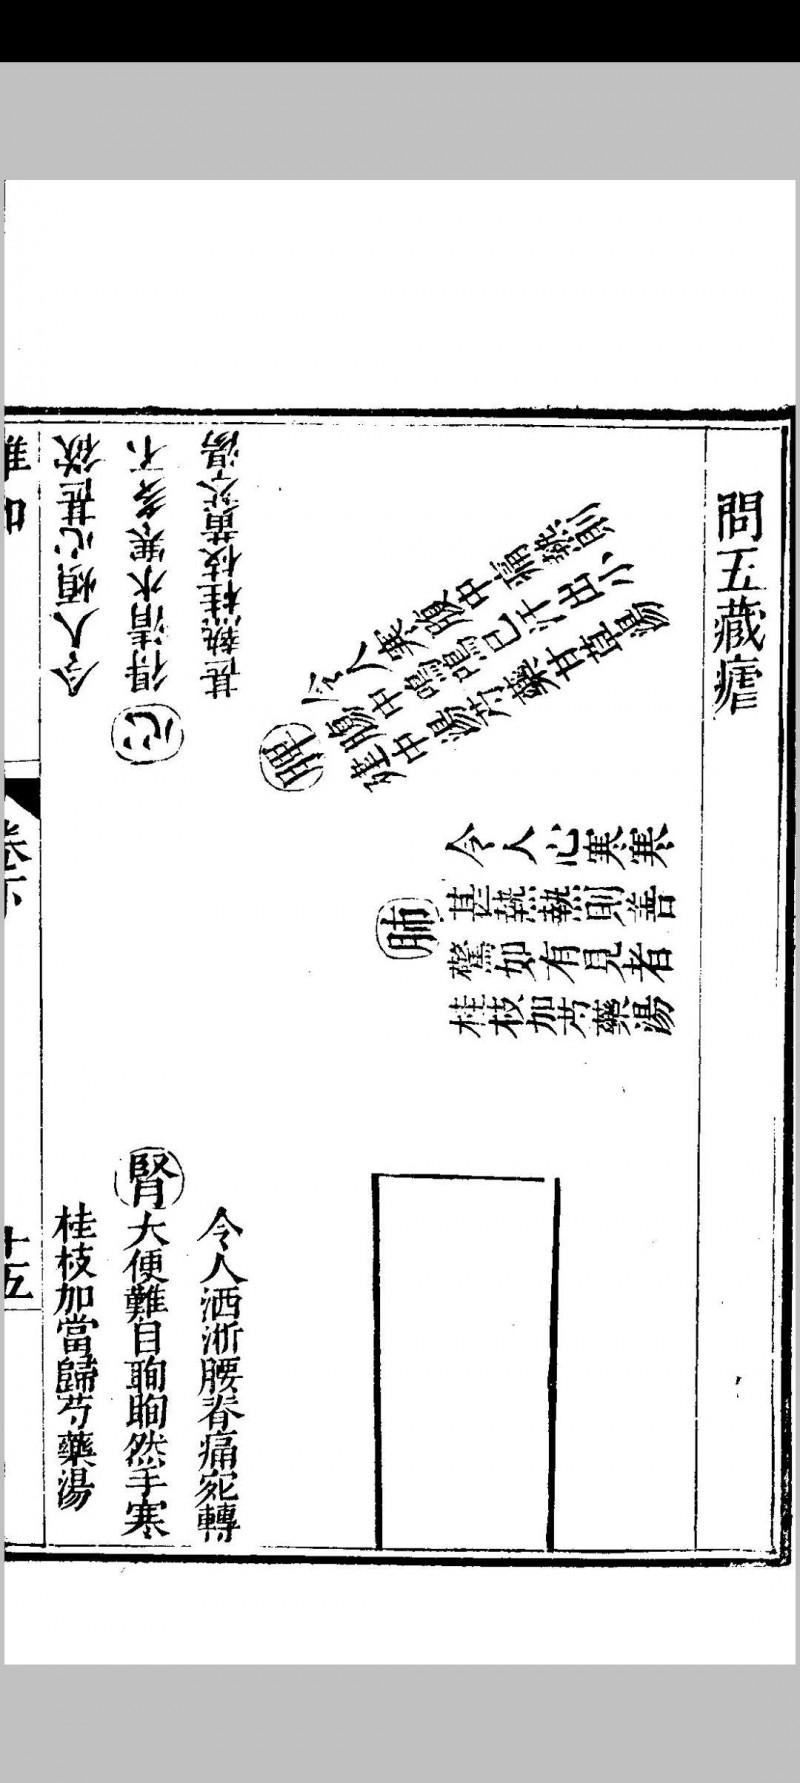 問五藏瘧
脾
令人寒腹中痛熱則
腸中鳴鳴已汗出小
建中湯芍藥甘草湯
肺
令人心寒寒
甚熱熱則善
驚如有見者
桂枝加芍藥湯
心
令人煩心甚欲
得清水寒多不
甚熱桂枝黃芩湯
腎
令人洒淅腰脊痛宛轉
大便難目眴眴然手寒
桂枝加當歸芍藥湯
卷下
十五